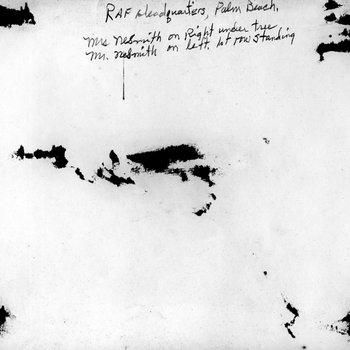 RAF Headquarters, Palm Beach.
Mrs Nesmith on Right under tree
Mr. Nesmith on left. 1st row standing